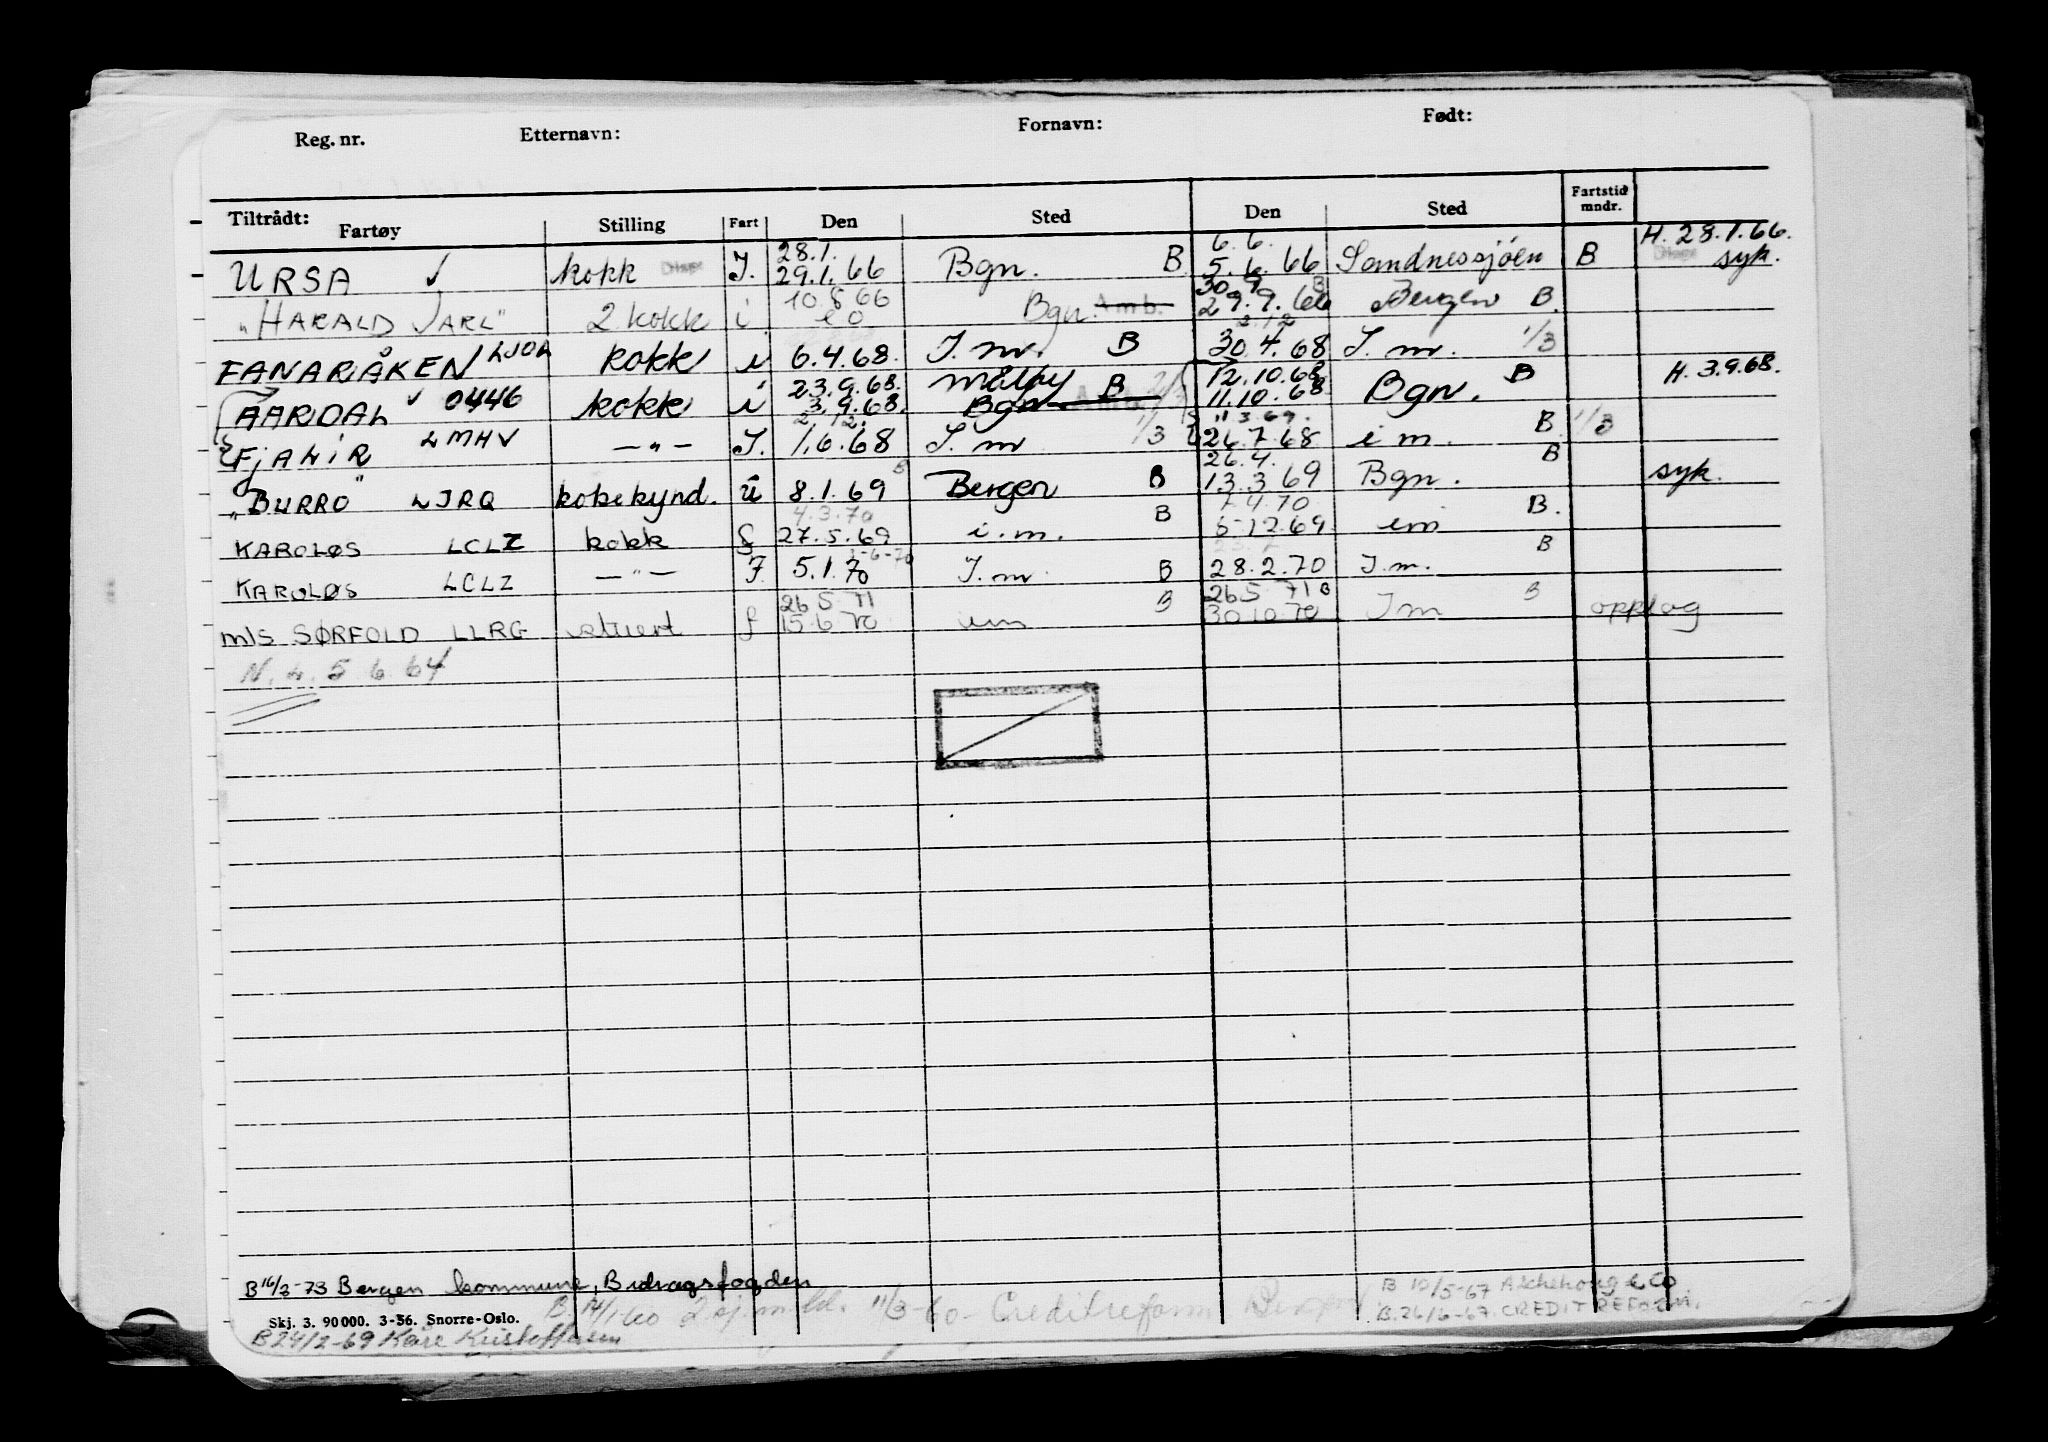 Reg. nr. Etternavn: Fornavn: Født:
Tiltrådt: Fartøy Stilling Fart Den Sted Den Sted Fartstid mndr.
H. 28.1.66.
28.1. 6.6.
URSA ✓ kokk J. 29.1.66 Bgn. B 5.6.66 Sandnessjöen B syk.
10.8 66 30.9 B
"HARALD JARL" 2 kokk i Bgn. Amb. 29.9.66 Bergen B.
FANARÅKEN LJOL kokk i 6.4.68. J. m. B 30.4.68 J. m. 1/3
23.9.68. Måløy 12.10.68 B H. 3.9.68.
AARDAL ✓ 0446 kokk i 3.9.68. Bgn B Amb. 11.10.68 Bgn.
2.12. 11.3.69.
FJALIR LMHV —"— J. 1.6.68 J. m 1/3 26.7.68 i m. B 1/3
26.4. B
"BURRO" LJRQ kokekynd. ü 8.1.69 B Bergen B 13.3.69 Bgn. syk.
4.3.70 B 7.4.70 B.
KAROLØS LCLZ kokk f 27.5.69 i. m. 5.12.69 im
B
KAROLØS LCLZ —"— F. 5.1.70 J. m. B 28.2.70 J. m.
26 5 71 B 26 5 71 B B
m/s SØRFOLD LLRG stuert f 15.6.70 im 30.10.70 J m opplag
N. L. 5.6.64
B 16/3-73 Bergen kommune, Bidragsfogden
B 10/5-67 Aschehoug & Co
Skj. 3. 90 000. 3-56. Snorre-Oslo. B. 14/1-60 2 sj. m. bl. 11/3-60 - Creditreform Bergen B. 26/6-67. CREDITREFORM.
B 24/2-69 Kåre Kristoffersen